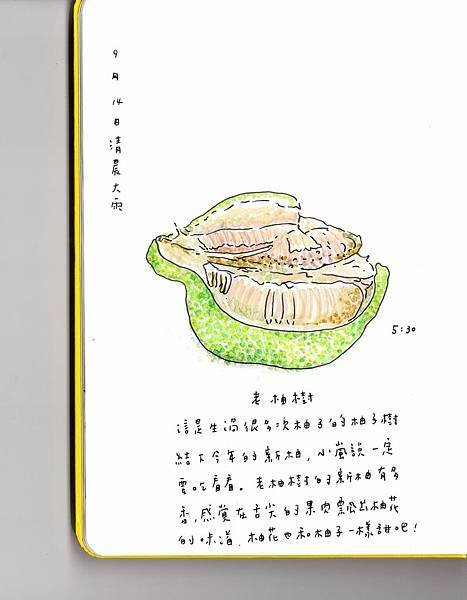 9月14日清晨大雨
5:30
老柚樹
這是生過很多次柚子的柚子樹
結下今年的新柚,小嵐說一定
要吃看看。老柚樹的新柚有多
香,感覺在舌尖的果肉飄出柚花
的味道,柚花也和柚子一樣甜吧!